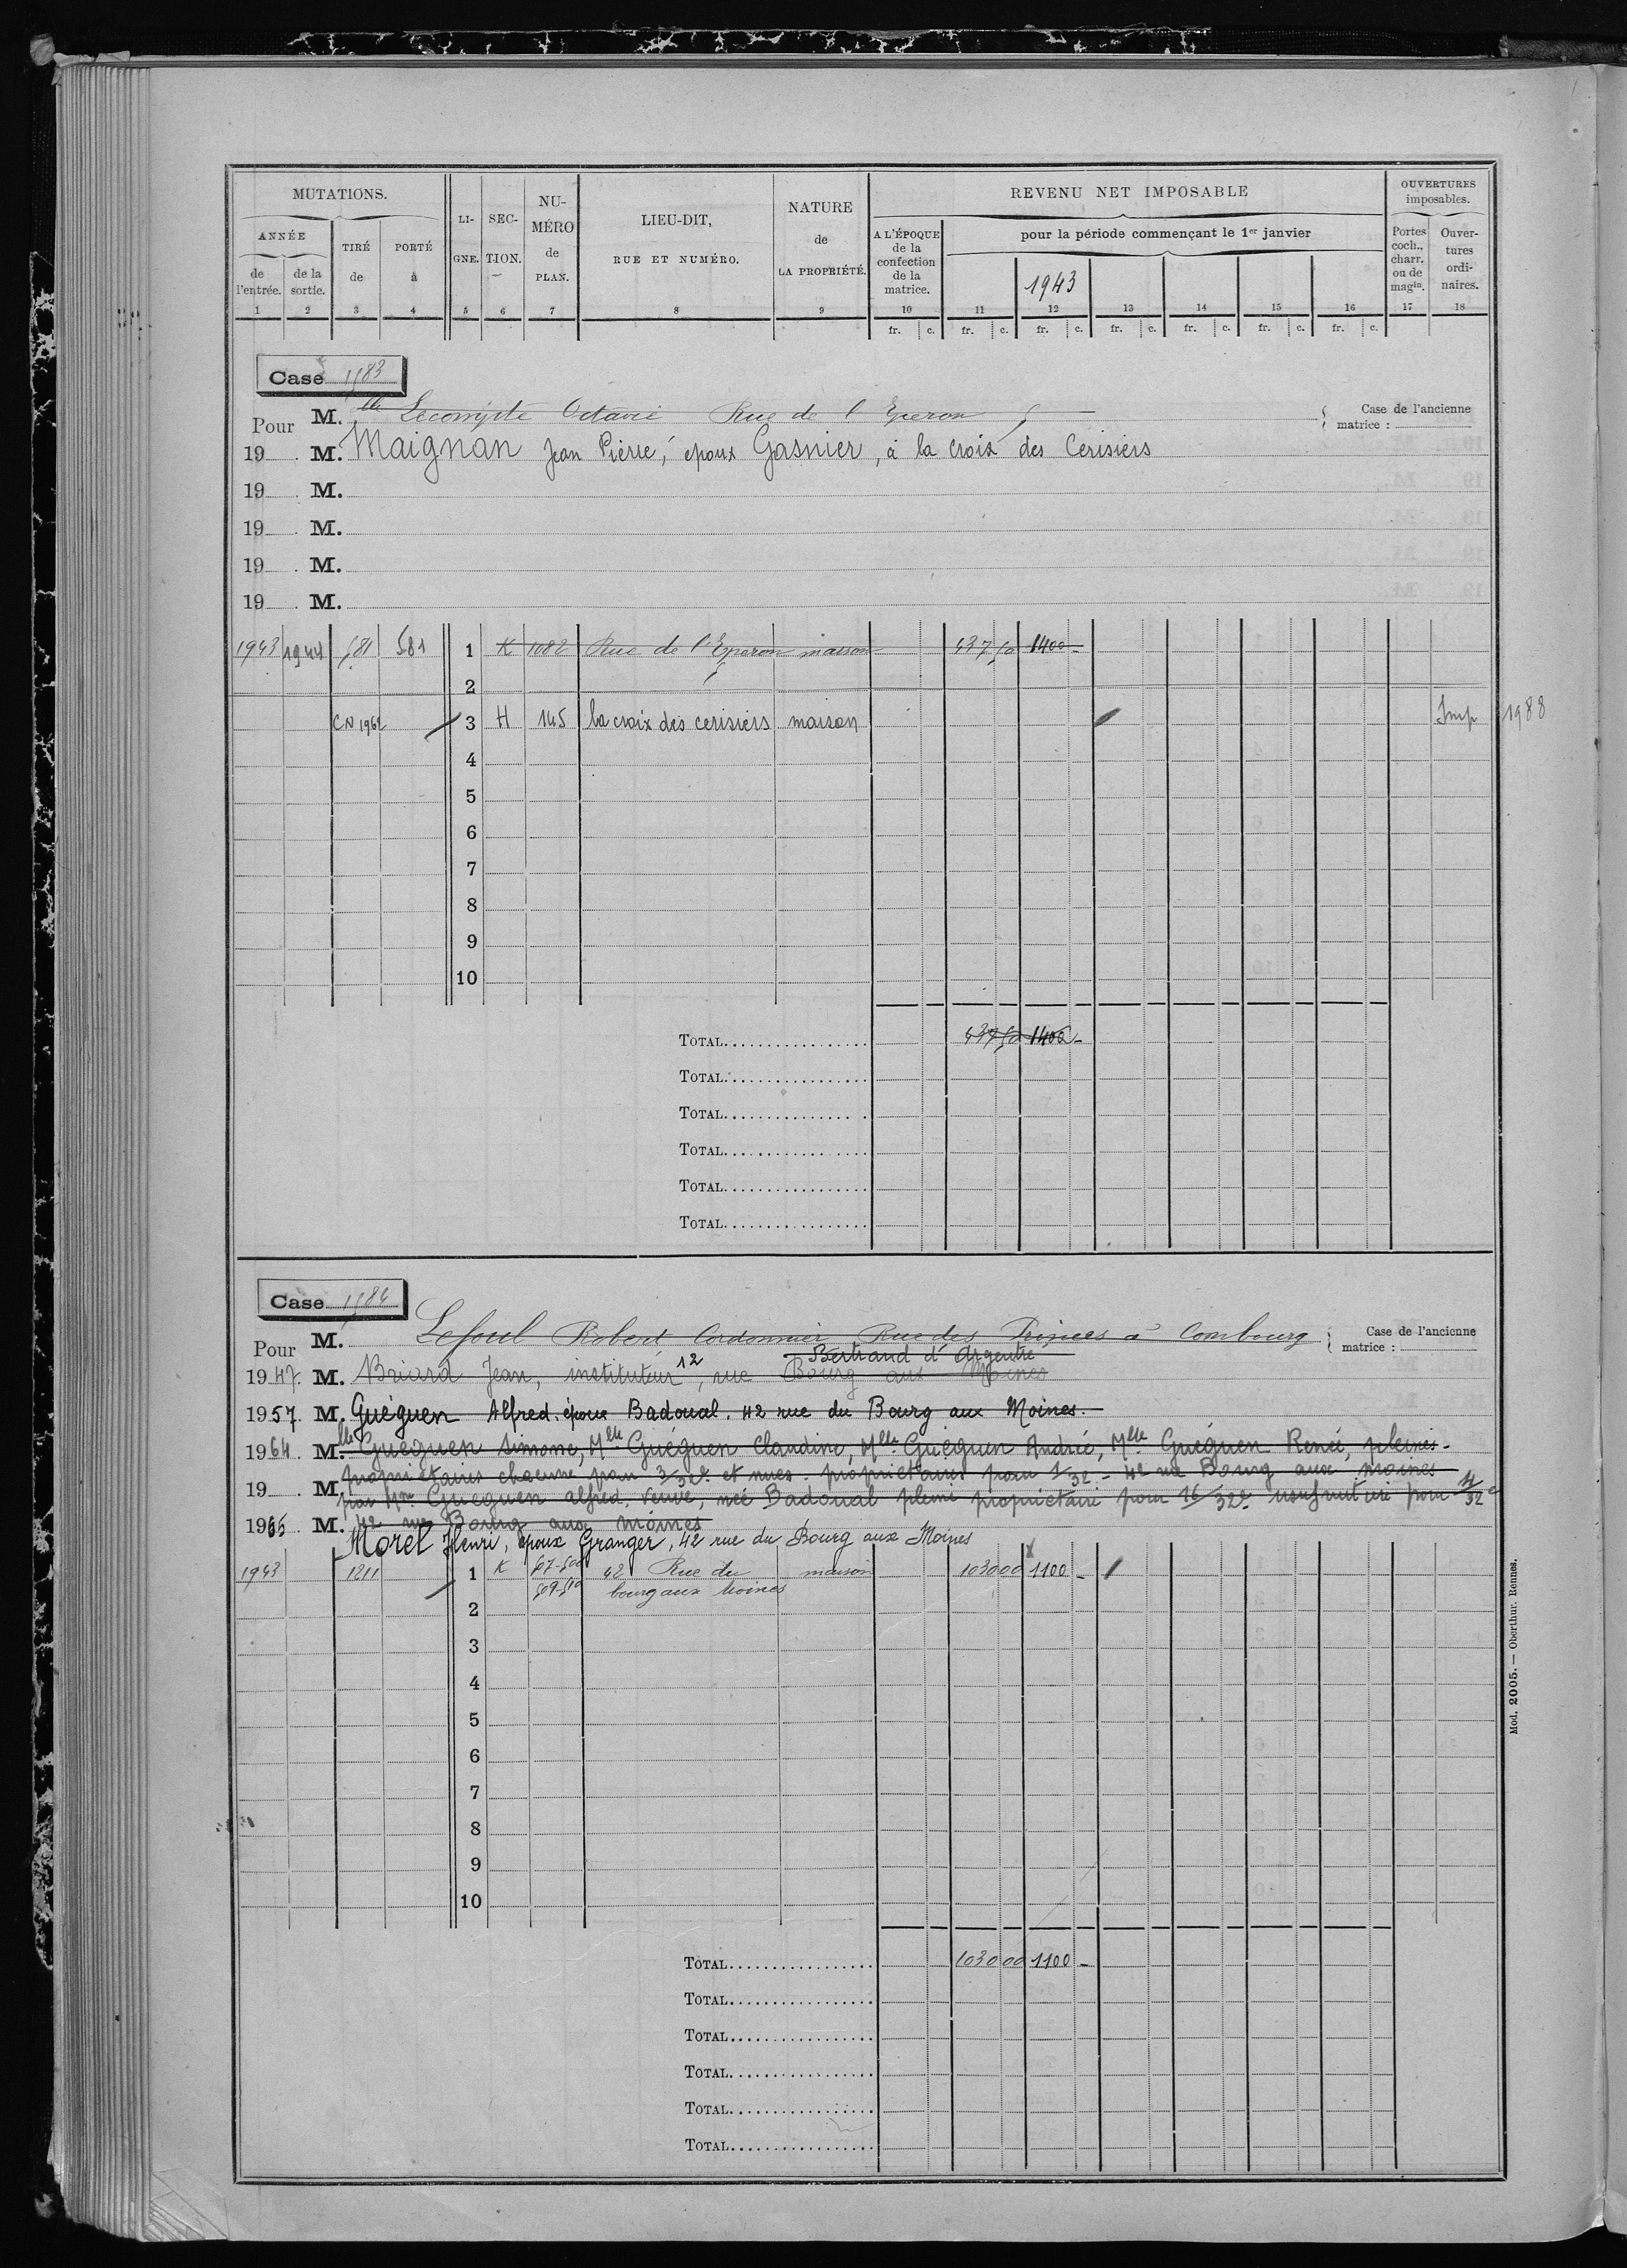 MUTATIONS.
ANNÉE
de l'entrée.
de la sortie.
TIRÉ de
PORTÉ à
LIGNE.
SECTION.
NUMÉRO de PLAN.
LIEU-DIT, RUE ET NUMÉRO.
NATURE de LA PROPRIÉTÉ.
REVENU NET IMPOSABLE
A L'ÉPOQUE de la confection de la matrice.
pour la période commençant le 1er janvier
1943
OUVERTURES imposables.
Portes coch., charr. ou de magin.
Ouvertures ordinaires.
1 2 3 4 5 6 7 8 9 10 11 12 13 14 15 16 17 18
fr. c. fr. c. fr. c. fr. c. fr. c. fr. c. fr. c.
Case 1583
Pour M. lle Lecompte Octavie Rue de l'Eperon 5
Case de l'ancienne matrice :
19 M. Maignan Jean Pierre, époux Gasnier, à la Croix des Cerisiers
19 M.
19 M.
19 M.
19 M.
1943 1944 581 581 1 K 1082 Rue de l'Eperon maison 437 50 1400 -
5
2
CN 1962 3 H 145 la croix des cerisiers maison Imp 1988
4
5
6
7
8
9
10
TOTAL 437 50 1400 -
TOTAL
TOTAL
TOTAL
TOTAL
TOTAL
Case 1584
Pour M. Lefoul Robert Cordonnier Rue des Princes à Combourg
Case de l'ancienne matrice :
Bertrand d'Argentré
1947 M. Briard Jean, instituteur, 12 rue Bourg aux Moines
1957 M. Guéguen Alfred. époux Badoual. 42 rue du Bourg aux Moines.
1964 M. lle Guéguen Simone, Mlle Guéguen Claudine, Mlle Guéguen Andrée, Mlle Guéguen Renée, pleines-
propriétaires chacune pour 3/32e et nues-propriétaires pour 1/32 - 42 rue Bourg aux moines
19 M. par Mme Guéguen alfred, veuve, née Badoual pleine propriétaire pour 16/32e usufruitière pour 4/32e
1965 M. 42 rue Bourg aux moines
Morel Henri, époux Granger, 42 rue du Bourg aux Moines
1943 1211 1 K 507-508 42 Rue du maison 1030 00 1100 -
509-510 bourg aux Moines
2
3
4
5
6
7
8
9
10
TOTAL 1030 00 1100 -
TOTAL
TOTAL
TOTAL
TOTAL
TOTAL
Mod. 2005. — Oberthur. Rennes.